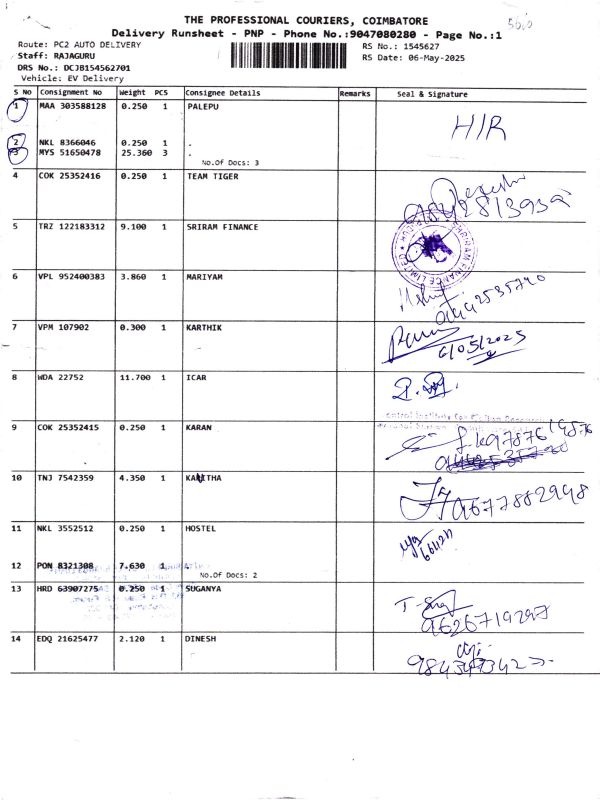 THE PROFESSIONAL COURIERS, COIMBATORE
Delivery Runsheet - PNP - Phone No.:9047080280 - Page No.:1
Route: PC2 AUTO DELIVERY
RS No.: 1545627
Staff: RAJAGURU
RS Date: 06-May-2025
DRS No.: DCJB154562701
Vehicle: EV Delivery
S No Consignment No Weight PCS Consignee Details Remarks Seal & Signature
1 MAA 303588128 0.250 1 PALEPU
H/R
2 NKL 8366046 0.250 1 .
3 MYS 51650478 25.360 3 .
No.Of Docs: 3
4 COK 25352416 0.250 1 TEAM TIGER
5 TRZ 122183312 9.100 1 SRIRAM FINANCE
6 VPL 952400383 3.860 1 MARIYAM
7 VPM 107902 0.300 1 KARTHIK
6/05/2025
8 WDA 22752 11.700 1 ICAR
9 COK 25352415 0.250 1 KARAN
10 TNJ 7542359 4.350 1 KAVITHA
9677882948
11 NKL 3552512 0.250 1 HOSTEL
12 PON 8321308 7.630 1 .
No.Of Docs: 2
13 HRD 63907275 0.250 1 SUGANYA
9626719297
14 EDQ 21625477 2.120 1 DINESH